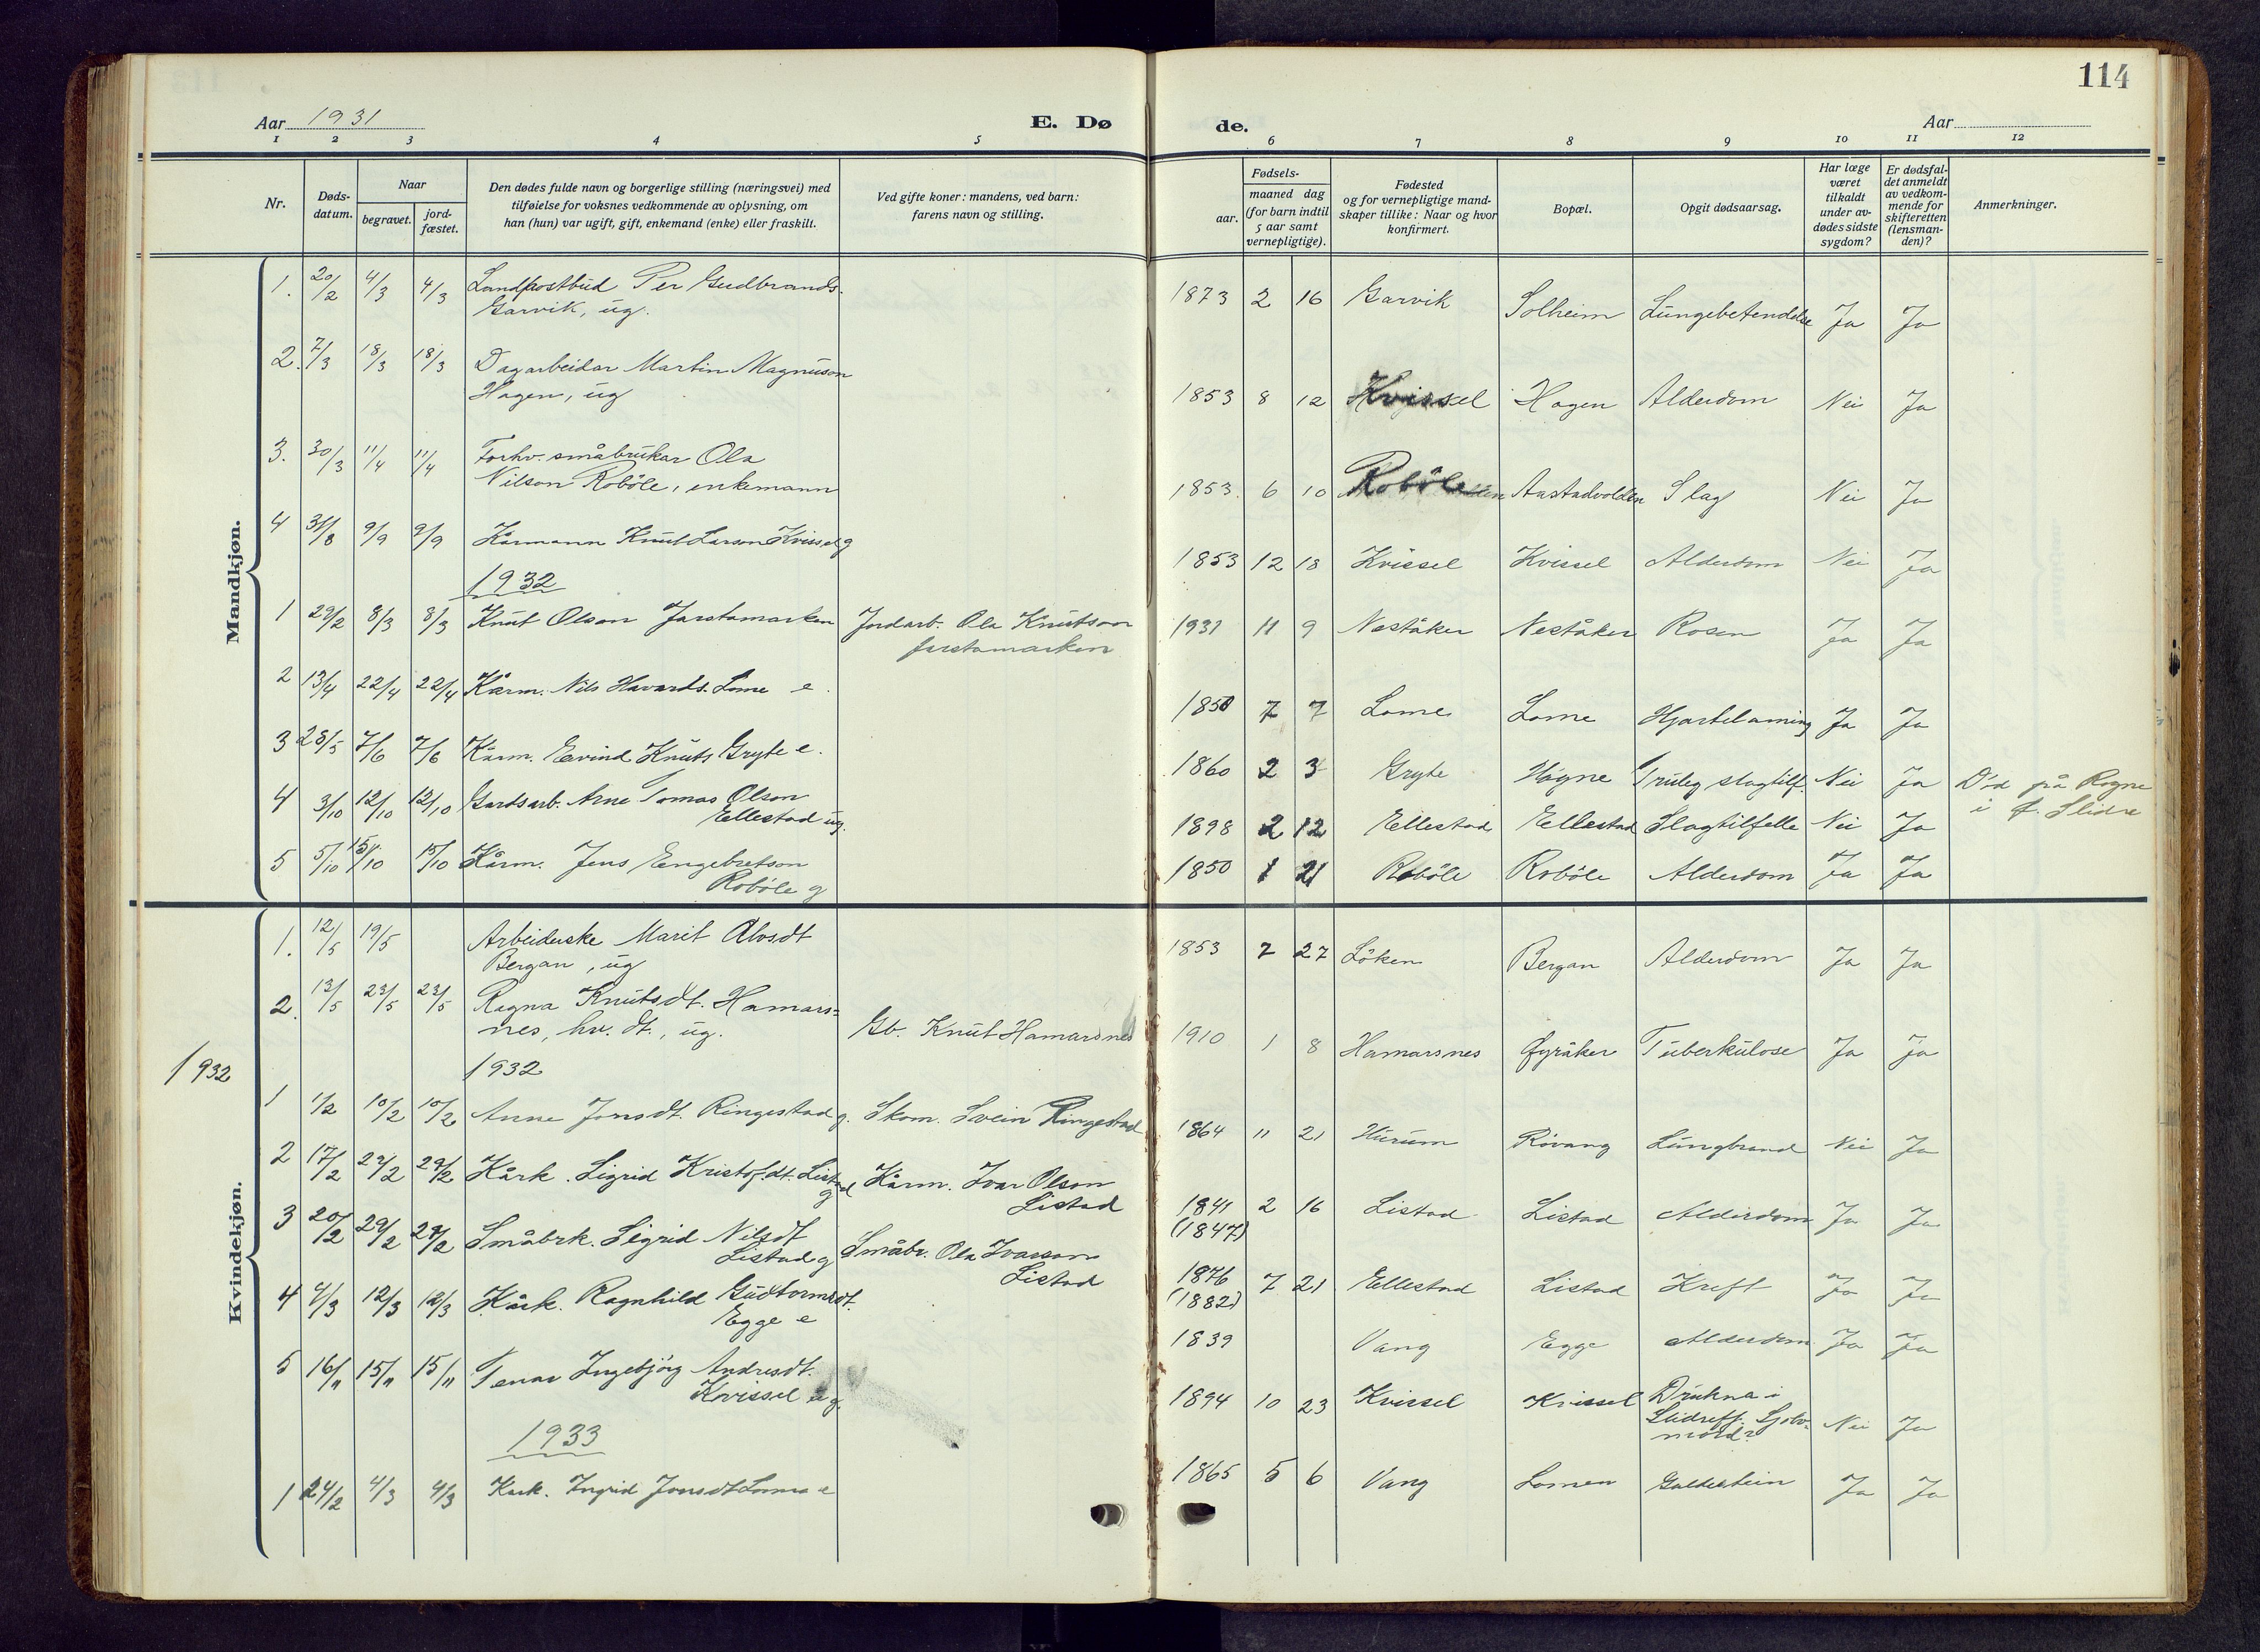 114
Aar 1931 E. Dø
de. Aar
1 2 3 4 5
6 7 8 9 10 11 12
Nr. Døds-datum. Naar begravet. jord-fæstet. Den dødes fulde navn og borgerlige stilling (næringsvei) med tilføielse for voksnes vedkommende av oplysning, om han (hun) var ugift, gift, enkemand (enke) eller fraskilt. Ved gifte koner: mandens, ved barn: farens navn og stilling.
Fødsels- aar. maaned dag (for barn indtil 5 aar samt vernepligtige). Fødested og for vernepligtige mandskaper tillike: Naar og hvor konfirmert. Bopæl. Opgit dødsaarsag. Har læge været tilkaldt under avdødes sidste sygdom? Er dødsfaldet anmeldt av vedkommende for skifteretten (lensmanden)? Anmerkninger.
Mandkjøn.
1. 20/2 4/3 4/3 Landpostbud Per Gudbrands. Garvik, ug. 1873 2 16 Garvik Solheim Lungebetendelse Ja Ja
2. 7/3 18/3 18/3 Dagarbeidar Martin Magnuson Hagen, ug 1853 8 12 Kvissel Hagen Alderdom Nei Ja
3. 30/3 11/4 11/4 Forhv. småbrukar Ola Nilson Robøle, enkemann 1853 6 10 Robøle Aastadvolden Slag Nei Ja
4 31/8 9/9 9/9 Kårmann Knut Larson Kvissel g 1853 12 18 Kvissel Kvissel Alderdom Nei Ja
1932
1 29/2 8/3 8/3 Knut Olson Jarstamarken Jordarb. Ola Knutson Jarstamarken 1931 11 9 Neståker Neståker Rosen Ja Ja
2 13/4 22/4 22/4 Kårm. Nils Havards. Lome e. 1850 7 7 Lome Lome Hjartelaming Ja Ja
3 28/5 7/6 7/6 Kårm. Eivind Knuts Gryte e. 1860 2 3 Gryte Høgne Truleg slagtilf. Nei Ja Død på Rogne i Ø. Slidre
4 3/10 12/10 12/10 Gardsarb. Arne Tomas Olson Ellestad ug. 1898 2 12 Ellestad Ellestad Slagtilfelle Nei Ja
5 5/10 15/10 15/10 Kårm. Jens Engebretson Robøle g 1850 1 21 Robøle Robøle Alderdom Ja Ja
Kvindekjøn.
1. 12/5 19/5 Arbeiderske Marit Alvsdt Bergan, ug 1853 7 27 Løken Bergan Alderdom Ja Ja
2. 13/5 23/5 23/5 Ragna Knutsdt. Hamars= nes, hv. dt., ug. Gb. Knut Hamarsnes 1910 1 8 Hamarsnes Øyråker Tuberkulose Ja Ja
1932
1932
1 1/2 10/2 10/2 Anne Jonsdt. Ringestad g. Skom. Svein Ringestad 1864 11 21 Hurum Røvang Lungbrand Nei Ja
2 17/2 29/2 29/2 Kårk. Sigrid Kristof.dt. Listad g Kårm. Ivar Olson Listad 1841 (1847) 2 16 Listad Listad Alderdom Ja Ja
3 20/2 29/2 29/2 Småbrk. Sigrid Nilsdt Listad g Småbr. Ola Ivarson Listad 1876 (1882) 7 21 Ellestad Listad Kreft Ja Ja
4 4/3 12/3 12/3 Kårk. Ragnhild Gudtormsdt. Egge e 1839 Vang Egge Alderdom Ja Ja
5 16/11 15/11 15/11 Tenar Ingebjørg Andresdt. Kvissel ug. 1894 10 23 Kvissel Kvissel Drukna i Slidrefj. Sjølvmord? Nei Ja
1933
1 24/2 4/3 4/3 Kårk. Ingrid Jonsdt Lome e 1865 5 6 Vang Lomen Galdestein Ja Ja